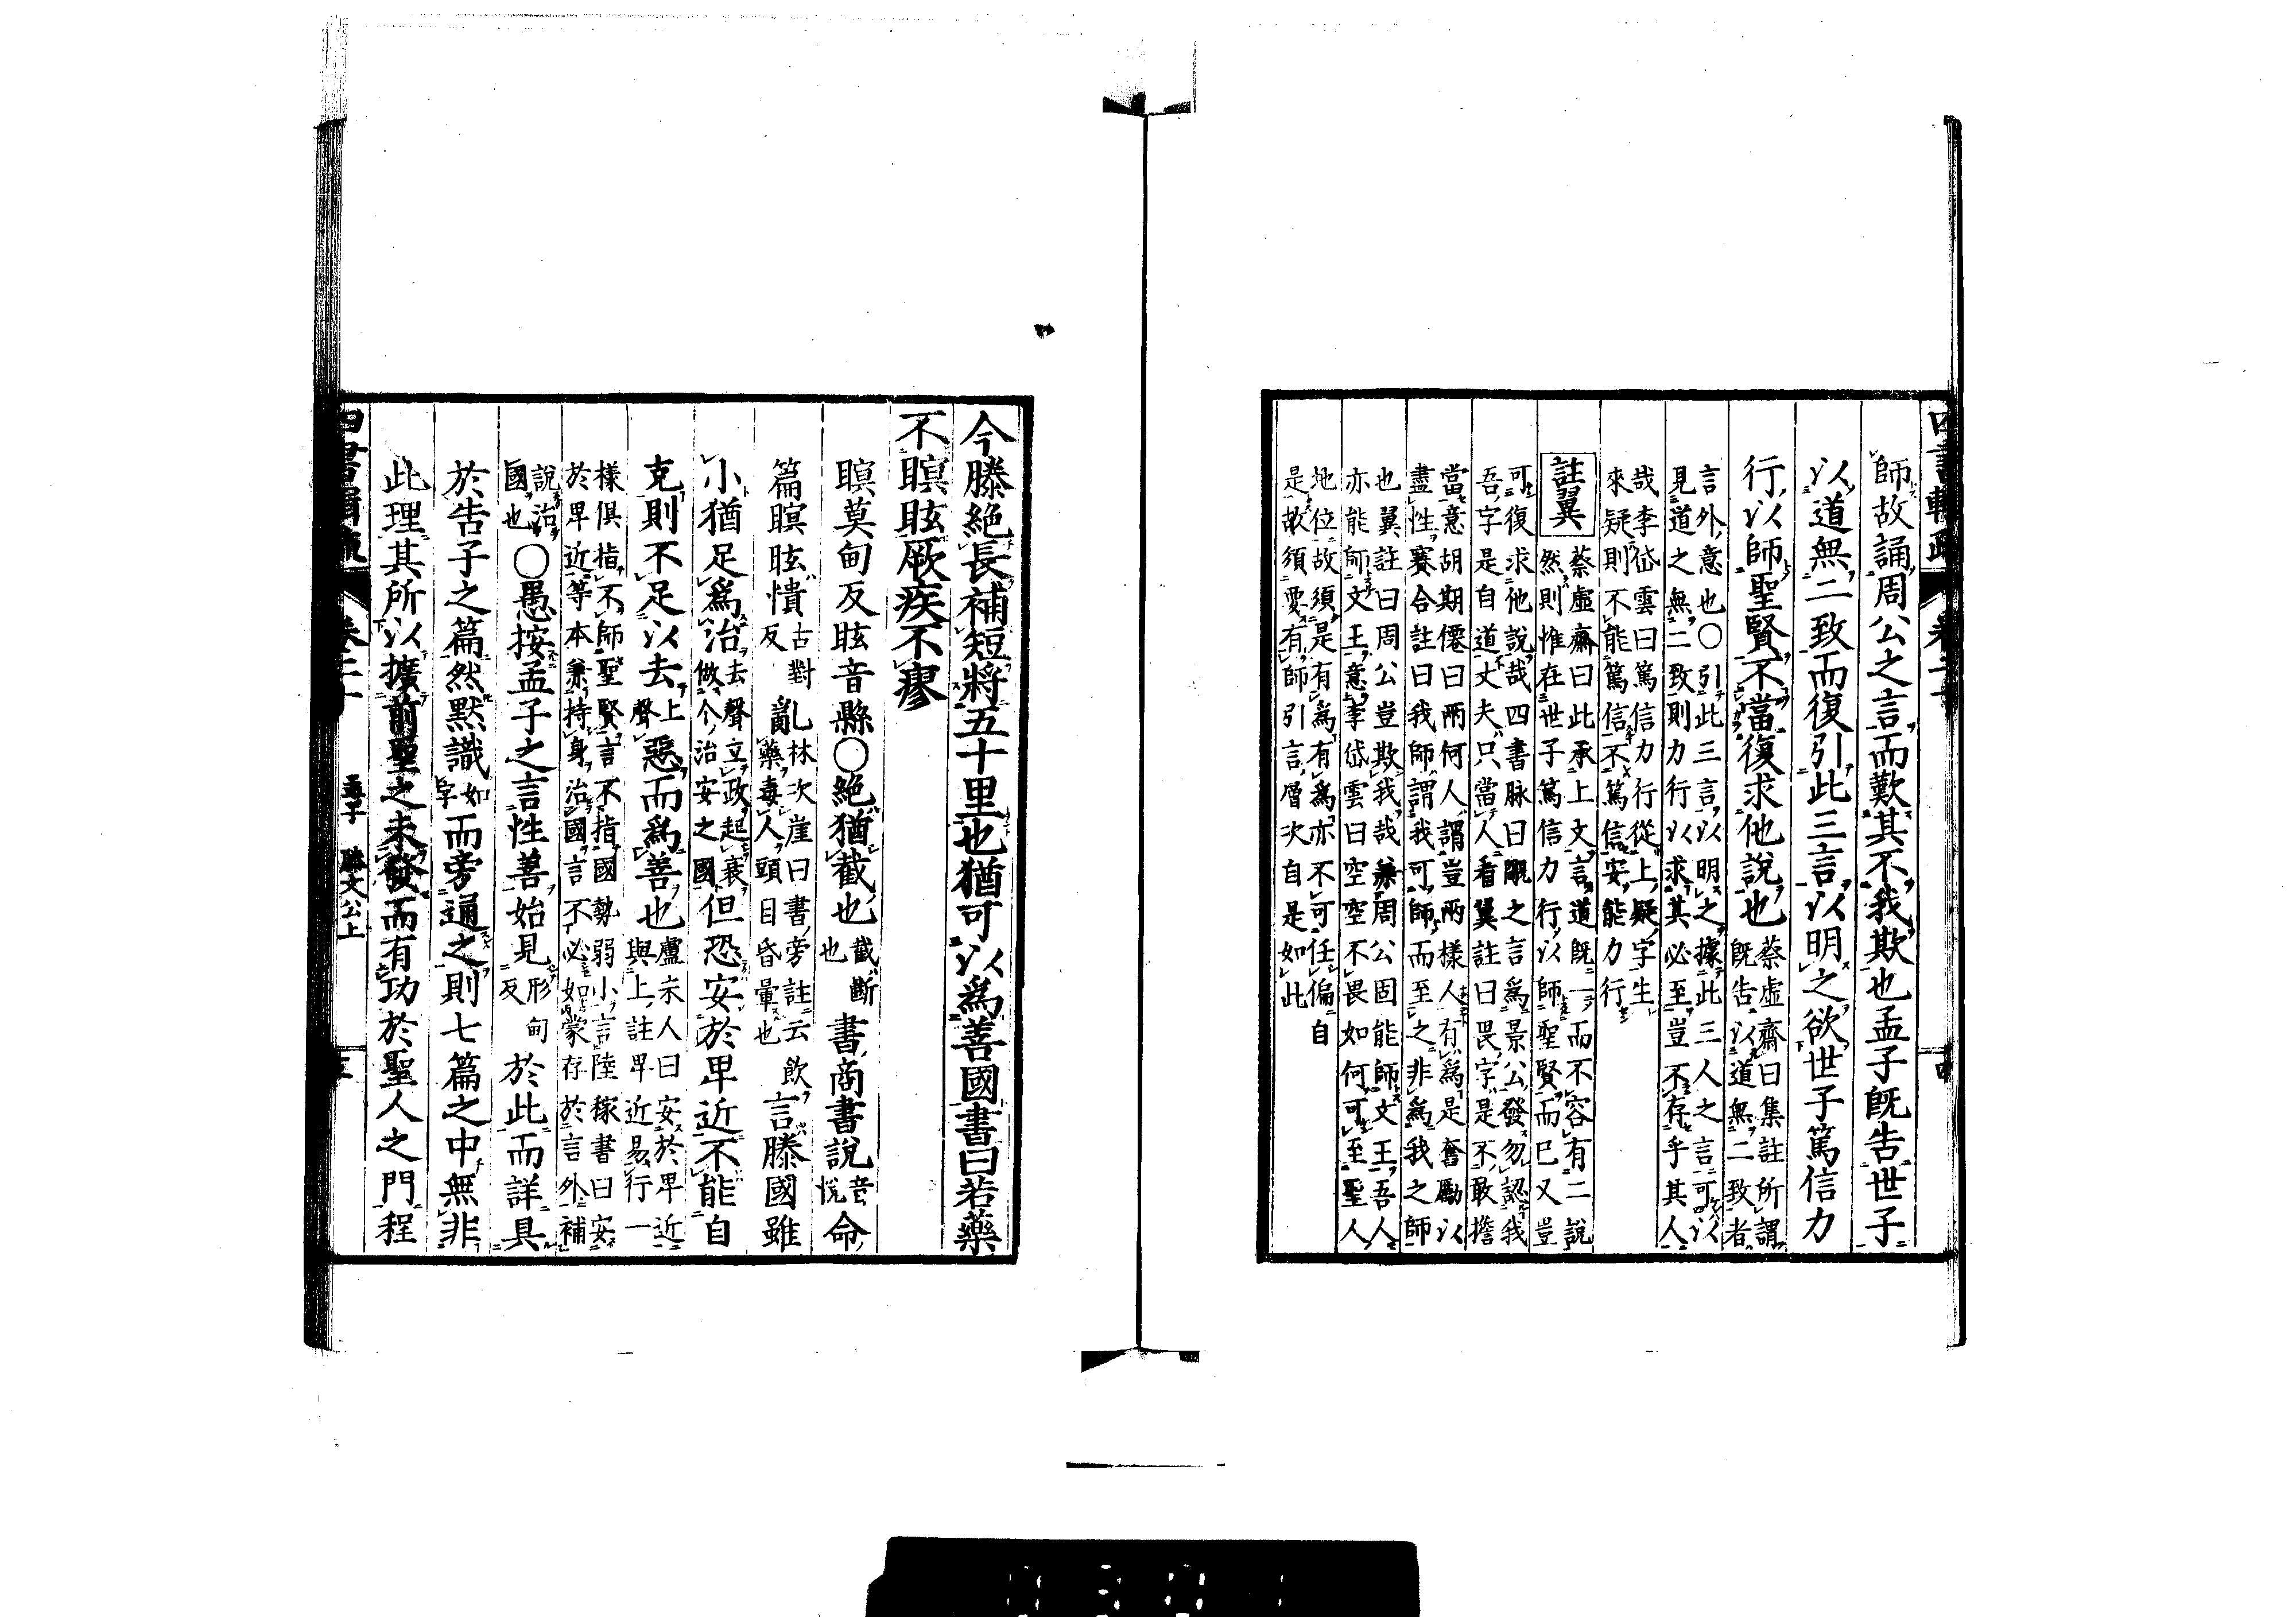 師故誦周公之言而歎其不我欺也孟子既告世子
以道無二致而復引此三言以明之欲世子篤信力
行以師聖賢不當復求他說也
蔡虛齋曰集註所謂
既告以道無二致者
言外意也〇引此三言以明之據此三人之言可以
見道之無二致則力行以求其必至豈不存乎其人
哉李岱雲曰篤信力行從上疑字生
來疑則不能篤信不篤信安能力行
註翼
蔡虛齋曰此承上文言道既一而不容有二說
然則惟在世子篤信力行以師聖賢而已又豈
可復求他說哉四書脉曰覸之言爲景公發勿認我
吾字是自道丈夫只當人看翼註曰畏字是不敢擔
當意胡期僊曰兩何人謂豈兩樣人有爲是奮勵以
盡性賽合註曰我師謂我可師而至之非爲我之師
也翼註曰周公豈欺我哉兼周公固能師文王吾人
亦能師文王意李岱雲曰空空不畏如何可至聖人
地位故須是有爲有爲亦不可任偏自
是故須要有師引言層次自是如此
今滕絶長補短將五十里也猶可以爲善國書曰若藥
不瞑眩厥疾不瘳
瞑莫甸反眩音縣〇絶猶截也
截斷
也
書商書說
音
悅
命
篇瞑眩憒
古對
反
亂
林次崖曰書旁註云飲
藥毒人頭目昏暈也
言滕國雖
小猶足爲治
去聲立政起衰
做个治安之國
但恐安於卑近不能自
克則不足以去
上
聲
惡而爲善也
盧未人曰安於卑近
與上註卑近易行一
樣俱指不師聖賢言不指國勢弱小言陸稼書曰安
於卑近等本兼持身治國言不必如蒙存於言外補
說治
國也
〇愚按孟子之言性善始見
形甸
反
於此而詳具
於告子之篇然默識
如
字
而旁通之則七篇之中無非
此理其所以擴前聖之未發而有功於聖人之門程
孟子 滕文公上